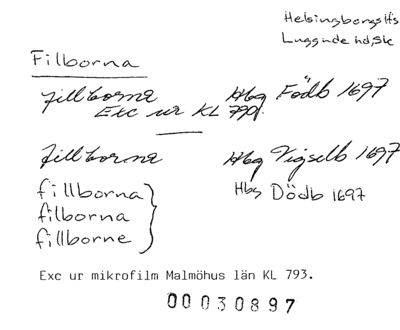 Helsingborgs lfs
Luggude hd, Sk
Filborna
fillborna Hbg Födb 1697
Exc ur KL 790.
fillborna Hbg Vigselb 1697
fillborna Hbg Dödb 1697
filborna
fillborne
Exc ur mikrofilm Malmöhus län KL 793.
00030897